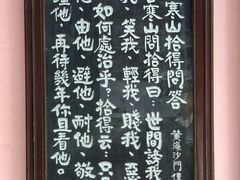 寒山拾得問答
寒山問拾得曰：世間謗我
我、笑我、輕我、賤我、惡
如何處治乎？拾得云：只
他、由他、避他、耐他、敬
他、再待幾年你且看他。
沙門